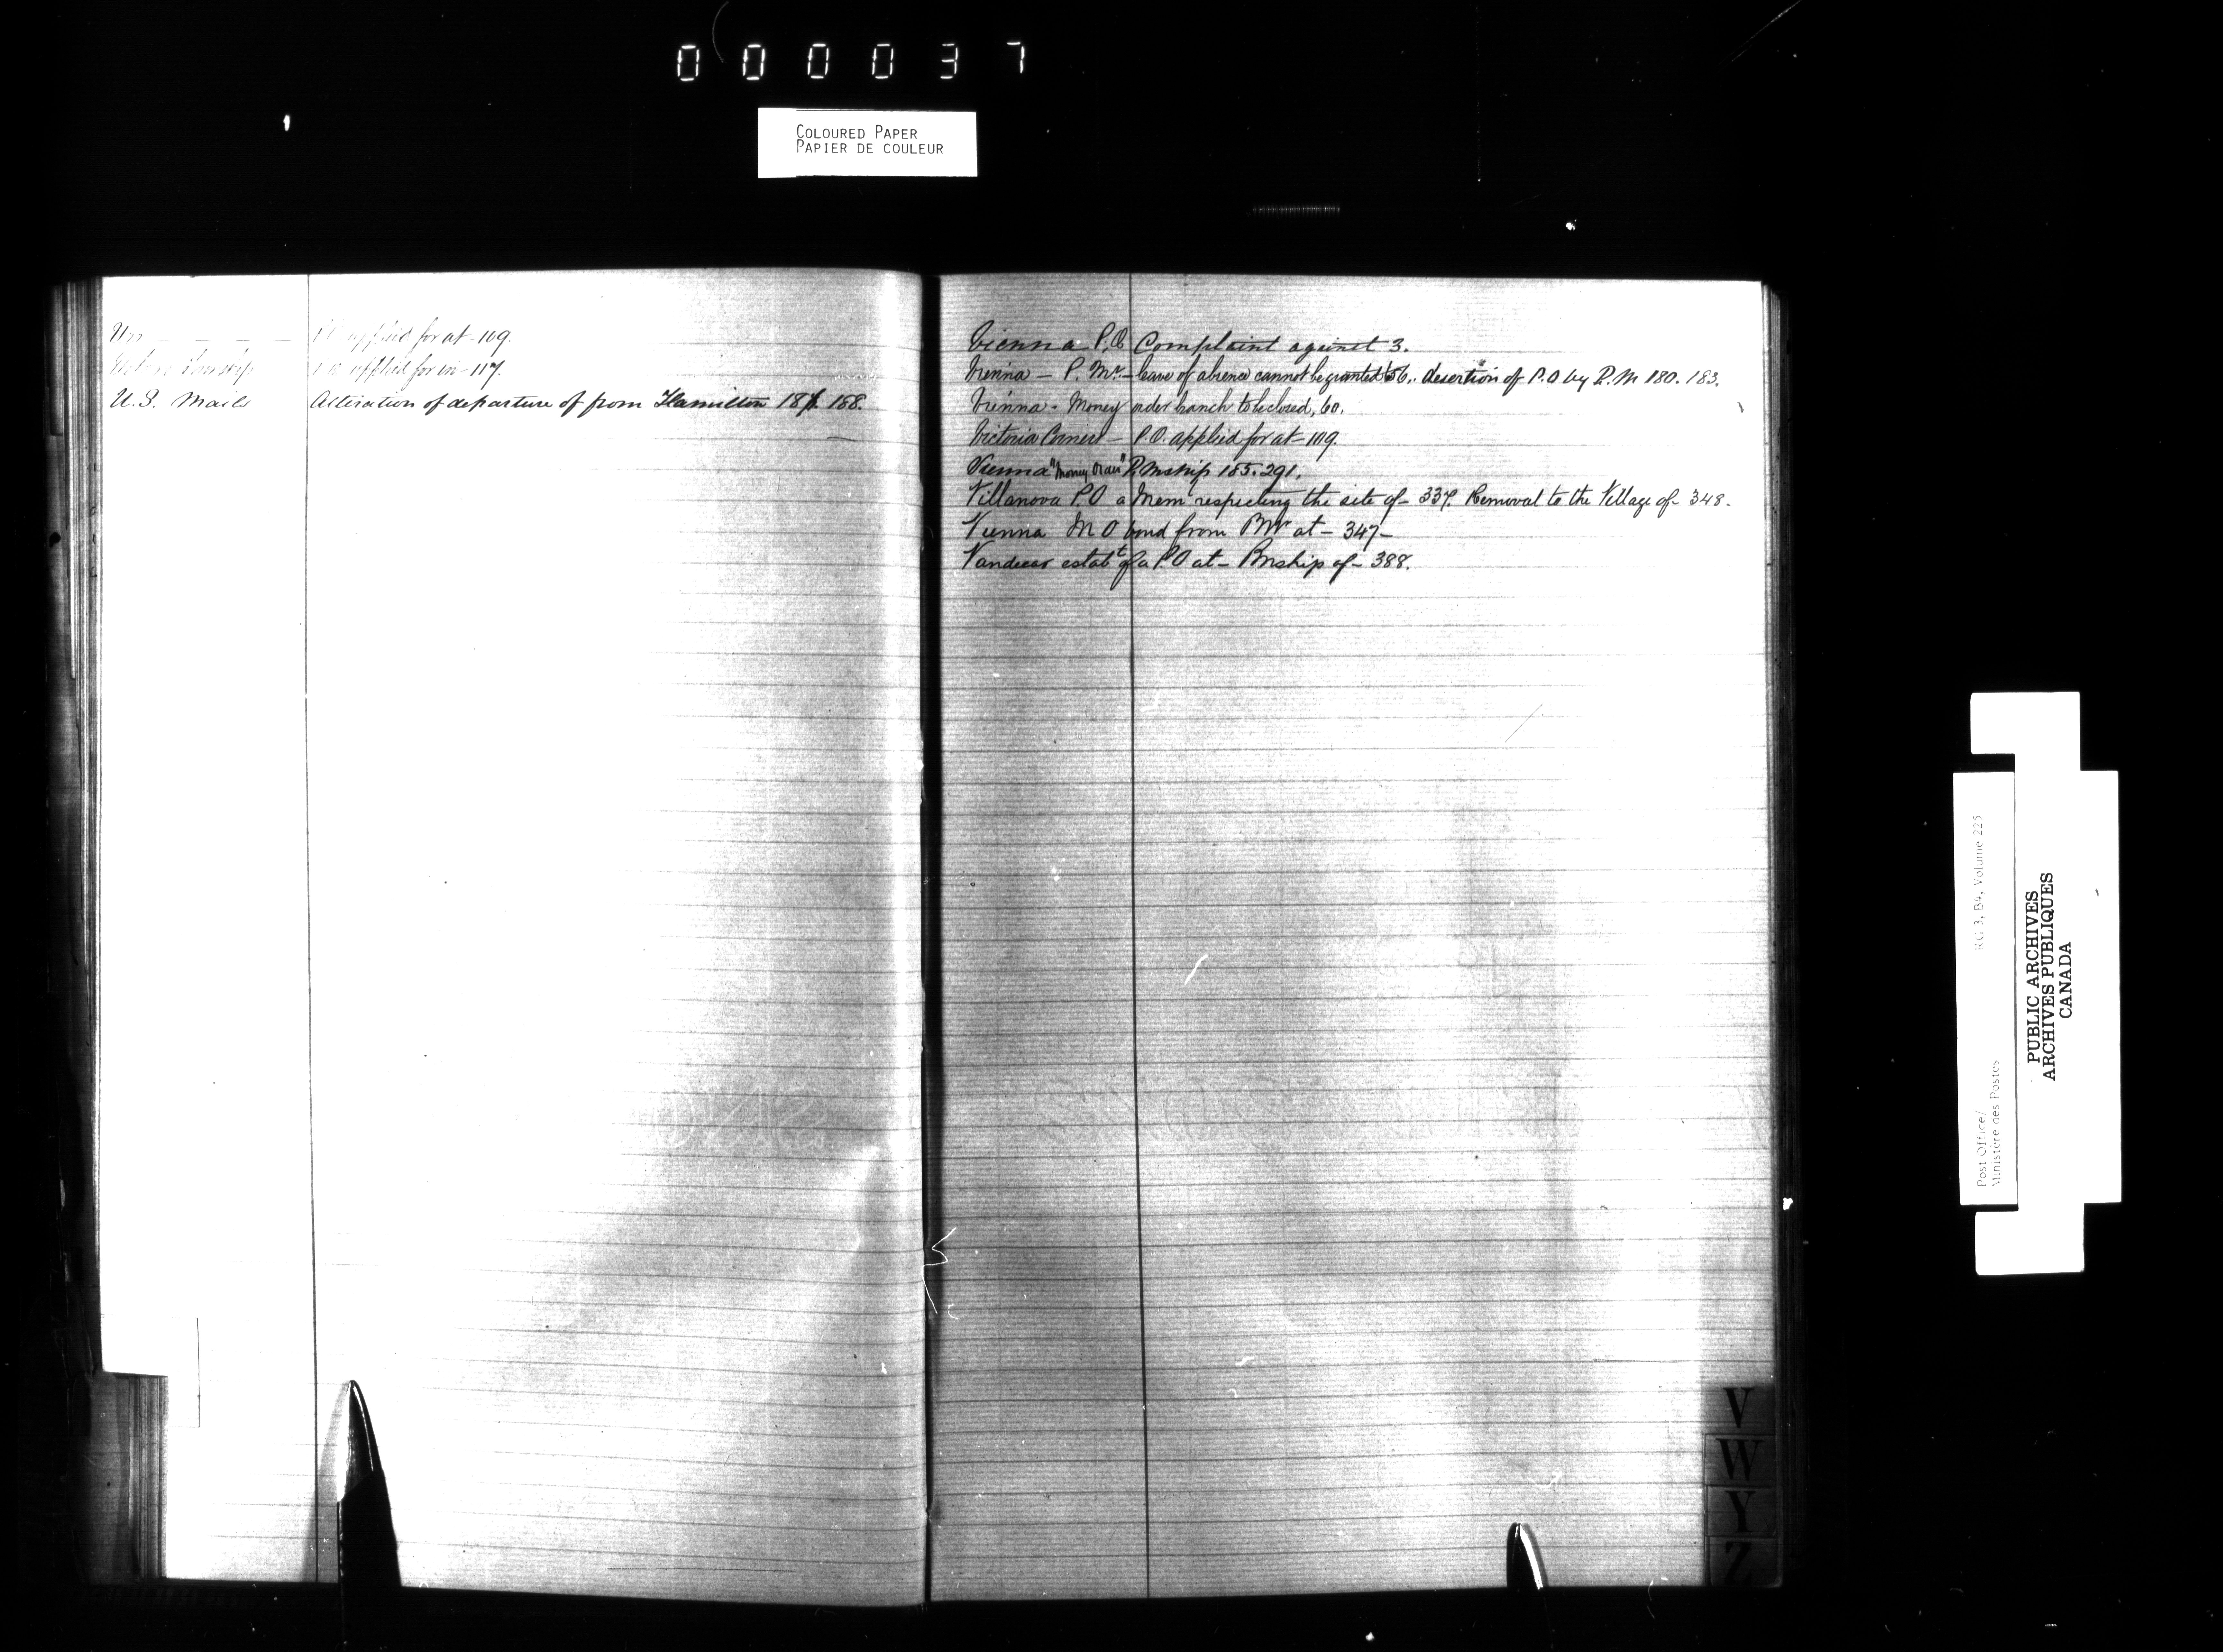 000037
COLOURED PAPER
PAPIER DE COULEUR
applied for at 109.
Township applied for in 117.
U.S. Mails Alteration of departure of from Hamilton 188.
Vienna P.O. Complaint against 3.
Vienna — P. Mr. — leave of absence cannot be granted 56., desertion of P.O by P.M 180. 183.
Vienna - Money order branch to be closed, 60.
Victoria Corners — P.O. applied for at 109.
Vienna "Money Order" P Mship 185. 291.
Villanova P.O a Mem respecting the site of — 337. Removal to the Village of — 348.
Vienna M O bond from PMr at — 347 —
Vandecar estabt of a P.O at — Pmship of — 388.
V
W
Y
Z
Post Office/
Ministère des Postes
RG 3, B4, Volume 225
PUBLIC ARCHIVES
ARCHIVES PUBLIQUES
CANADA